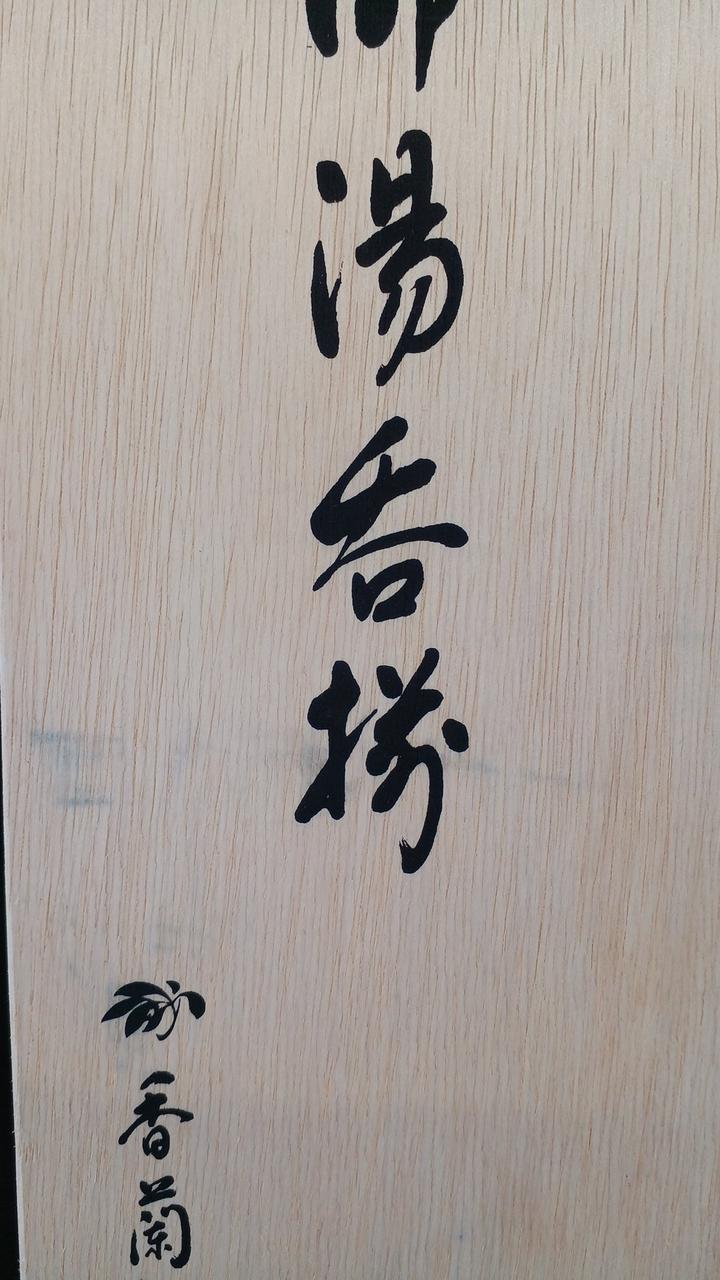 御湯呑揃
香蘭